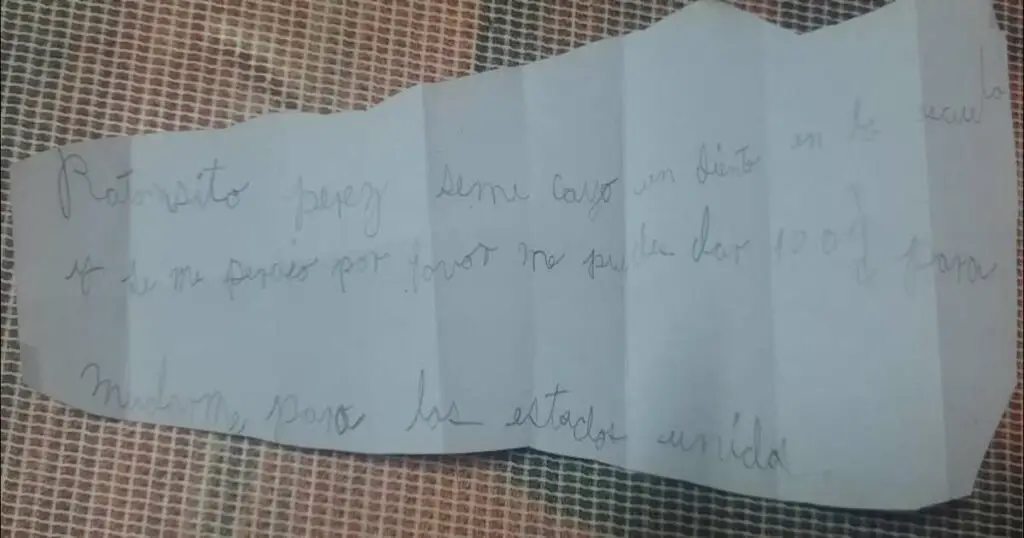 Ratonsito perez seme cayo un diente en la escuela
y se me perdio por favor me puedes dar 100 $ para
mudarme para los estados unida